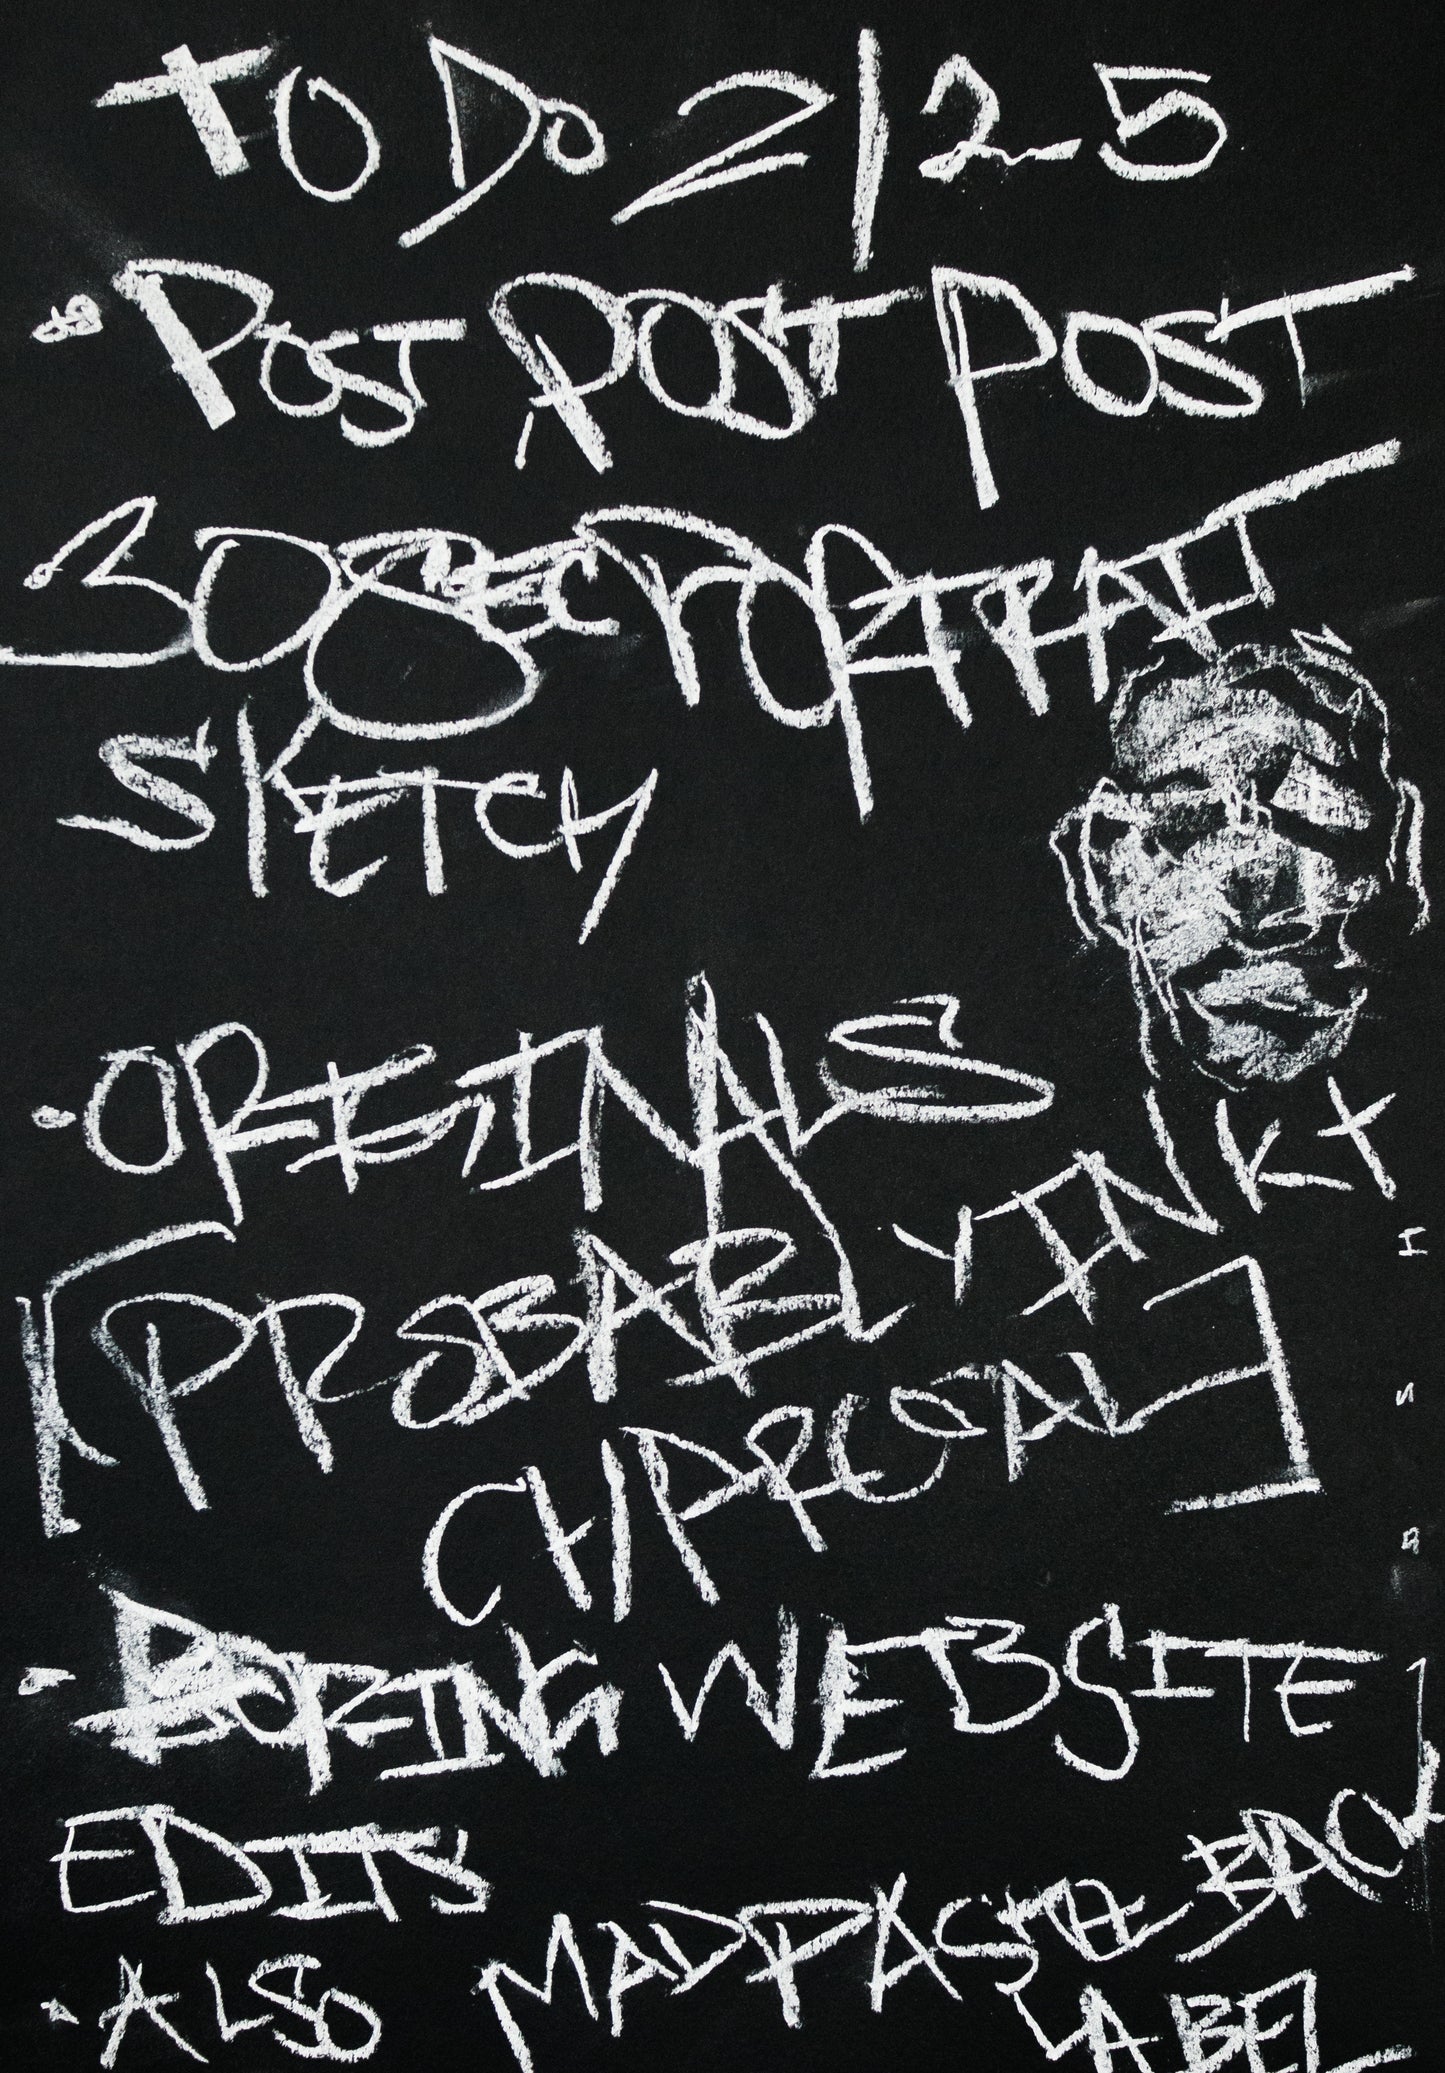 TO DO 2/25
• POST POST POST
30 SEC PORTRAIT
SKETCH
• ORIGINALS
[PROBABLY INK +
CHARCOAL]
• BORING WEBSITE
EDITS
• ALSO
MAD PASTEL BACK
LABEL